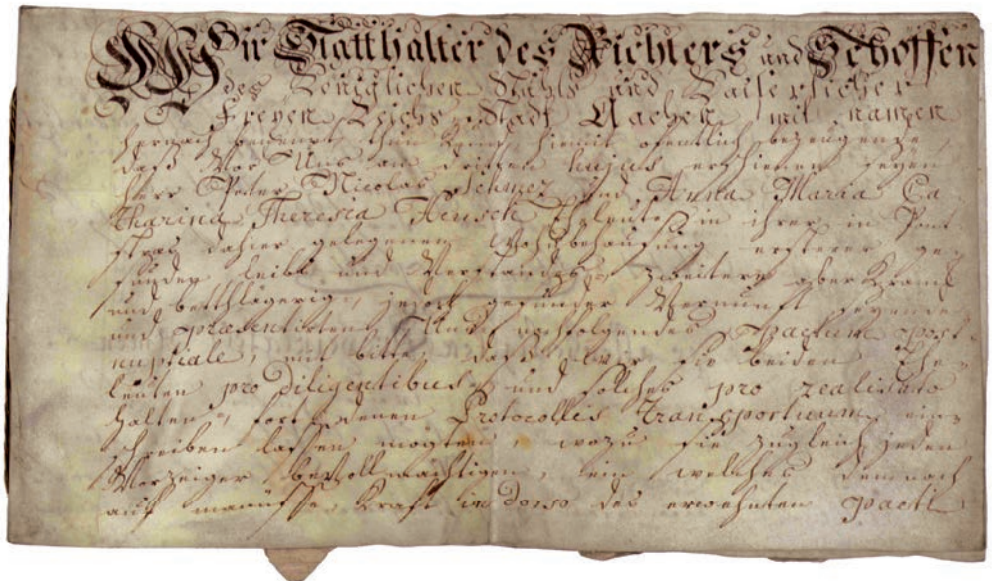 Wir Statthalter des Richters und Scheffen
des Königlichen Stuhls und Kaiserlicher
Freyen Reichs-Stadt Aachen mit namen
hernach benennt, thun Kund hiemit öfentlich bezeugende,
daß Vor Uns am dritten hujus erschienen seyen
Herr Peter Nicolas Schmez und Anna Maria Ca
tharina Theresia Heusch Eheleute in ihrer in Pont
stras dahier gelegenen Wohnbehausung ersterer ge
sunden leibs und Verstandes, zweitere aber Krank
und bethlägerig, jedoch gesunder Vernunft seyende
und præsentirten Uns nachfolgendes Pactum post
nuptiale, mit bitte, daß wir sie beiden Ehe
leuten pro diligentibus, und solches pro realisato
halten, fort denen Protocollis Transportuum ein
schreiben lassen mögten, wozu sie zugleich jeden
Vorzeiger bevollmächtigen, ein welches demnach
auf Kraft in dorso des erwehnten Pacti